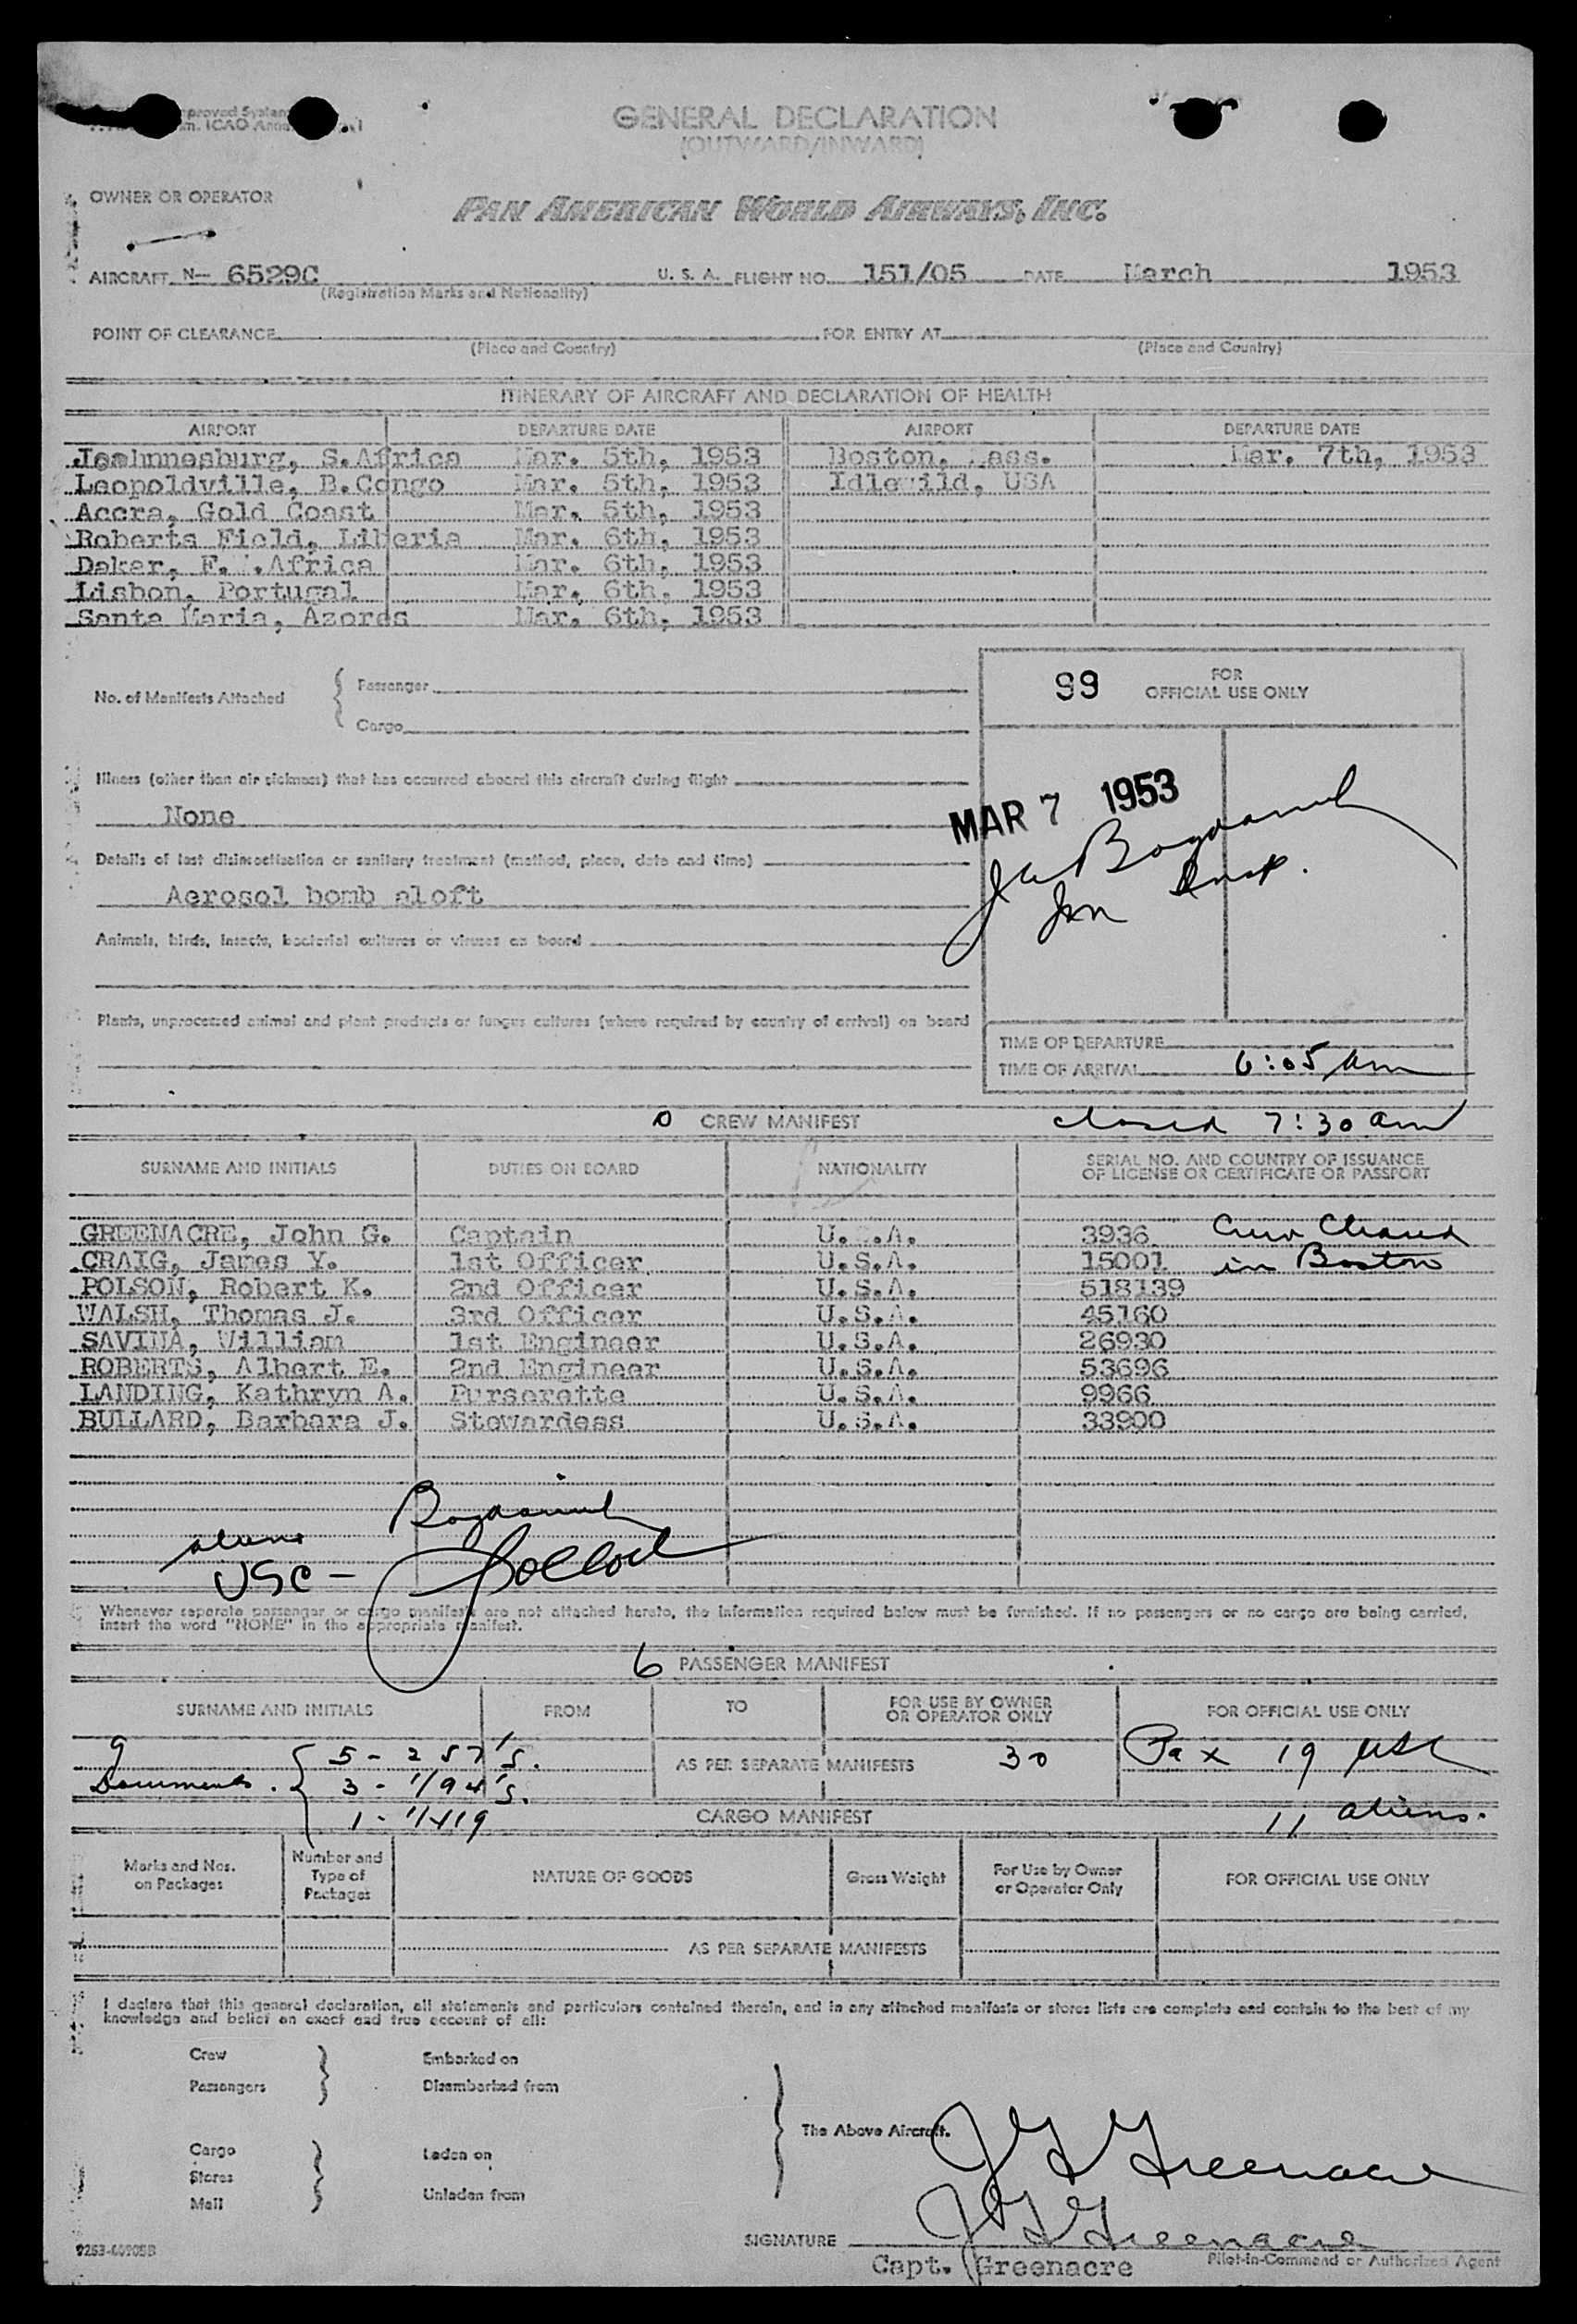 GENERAL DECLARATION
(OUTWARD/INWARD)
OWNER OR OPERATOR
PAN AMERICAN WORLD AIRWAYS, INC.
AIRCRAFT N— 6529C U. S. A. FLIGHT NO. 151/05 DATE March 1953
(Registration Marks and Nationality)
POINT OF CLEARANCE FOR ENTRY AT
(Place and Country) (Place and Country)
ITINERARY OF AIRCRAFT AND DECLARATION OF HEALTH
AIRPORT DEPARTURE DATE AIRPORT DEPARTURE DATE
Joahnnesburg, S.Africa Mar. 5th, 1953 Boston, Mass. Mar. 7th, 1953
Leopoldville, B.Congo Mar. 5th, 1953 Idlewild, USA
Accra, Gold Coast Mar. 5th, 1953
Roberts Field, Liberia Mar. 6th, 1953
Dakar, F. .Africa Mar. 6th, 1953
Lisbon, Portugal Mar. 6th, 1953
Santa Maria, Azores Mar. 6th, 1953
No. of Manifests Attached
Passenger
Cargo
99 FOR OFFICIAL USE ONLY
Illness (other than air sickness) that has occurred aboard this aircraft during flight
None
MAR 7 1953
Details of last disinsectisation or sanitary treatment (method, place, date and time)
Aerosol bomb aloft
Insp.
Animals, birds, insects, bacterial cultures or viruses on board
Plants, unprocessed animal and plant products or fungus cultures (where required by country of arrival) on board
TIME OF DEPARTURE
TIME OF ARRIVAL 6:05 am
CREW MANIFEST closed 7:30 am
SURNAME AND INITIALS DUTIES ON BOARD NATIONALITY SERIAL NO. AND COUNTRY OF ISSUANCE OF LICENSE OR CERTIFICATE OR PASSPORT
GREENACRE, John G. Captain U.S.A. 3936 Crew Cleared
CRAIG, James Y. 1st Officer U.S.A. 15001 in Boston
POLSON, Robert K. 2nd Officer U.S.A. 518139
WALSH, Thomas J. 3rd Officer U.S.A. 45160
SAVINA, William 1st Engineer U.S.A. 26930
ROBERTS, Albert E. 2nd Engineer U.S.A. 53696
LANDING, Kathryn A. Purserette U.S.A. 9966
BULLARD, Barbara J. Stewardess U.S.A. 33900
aliens
USC —
Whenever separate passenger or cargo manifests are not attached hereto, the information required below must be furnished. If no passengers or no cargo are being carried,
insert the word "NONE" in the appropriate manifest.
6 PASSENGER MANIFEST
SURNAME AND INITIALS FROM TO FOR USE BY OWNER OR OPERATOR ONLY FOR OFFICIAL USE ONLY
9 5 - 257's. AS PER SEPARATE MANIFESTS 30 Pax 19 USC
Documents. 3 - 1/94's.
1 - 1/419 CARGO MANIFEST 11 aliens.
Marks and Nos. on Packages Number and Type of Packages NATURE OF GOODS Gross Weight For Use by Owner or Operator Only FOR OFFICIAL USE ONLY
AS PER SEPARATE MANIFESTS
I declare that this general declaration, all statements and particulars contained therein, and in any attached manifests or stores lists are complete and contain to the best of my
knowledge and belief an exact and true account of all:
Crew Embarked on
Passengers Disembarked from
The Above Aircraft.
J G Greenacre
Cargo Laden on
Stores
Mail Unladen from
J G Greenacre
SIGNATURE
Capt. Greenacre Pilot-in-Command or Authorized Agent